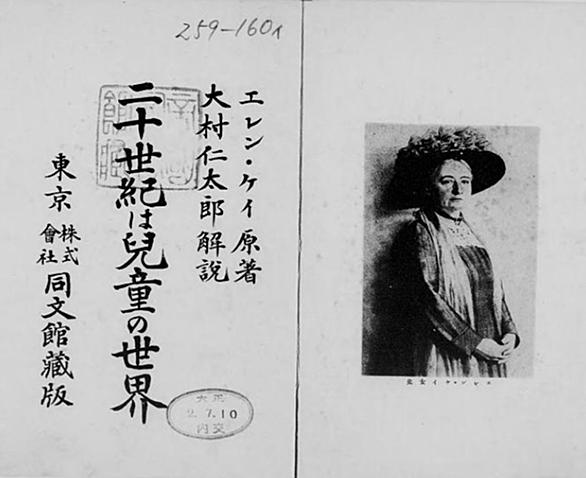 259-160イ
エレン・ケイ原著
大村仁太郎解説
二十世紀は兒童の世界
東京 株式會社 同文館藏版
大正
2.7.10
内交
エレン・ケイ女史